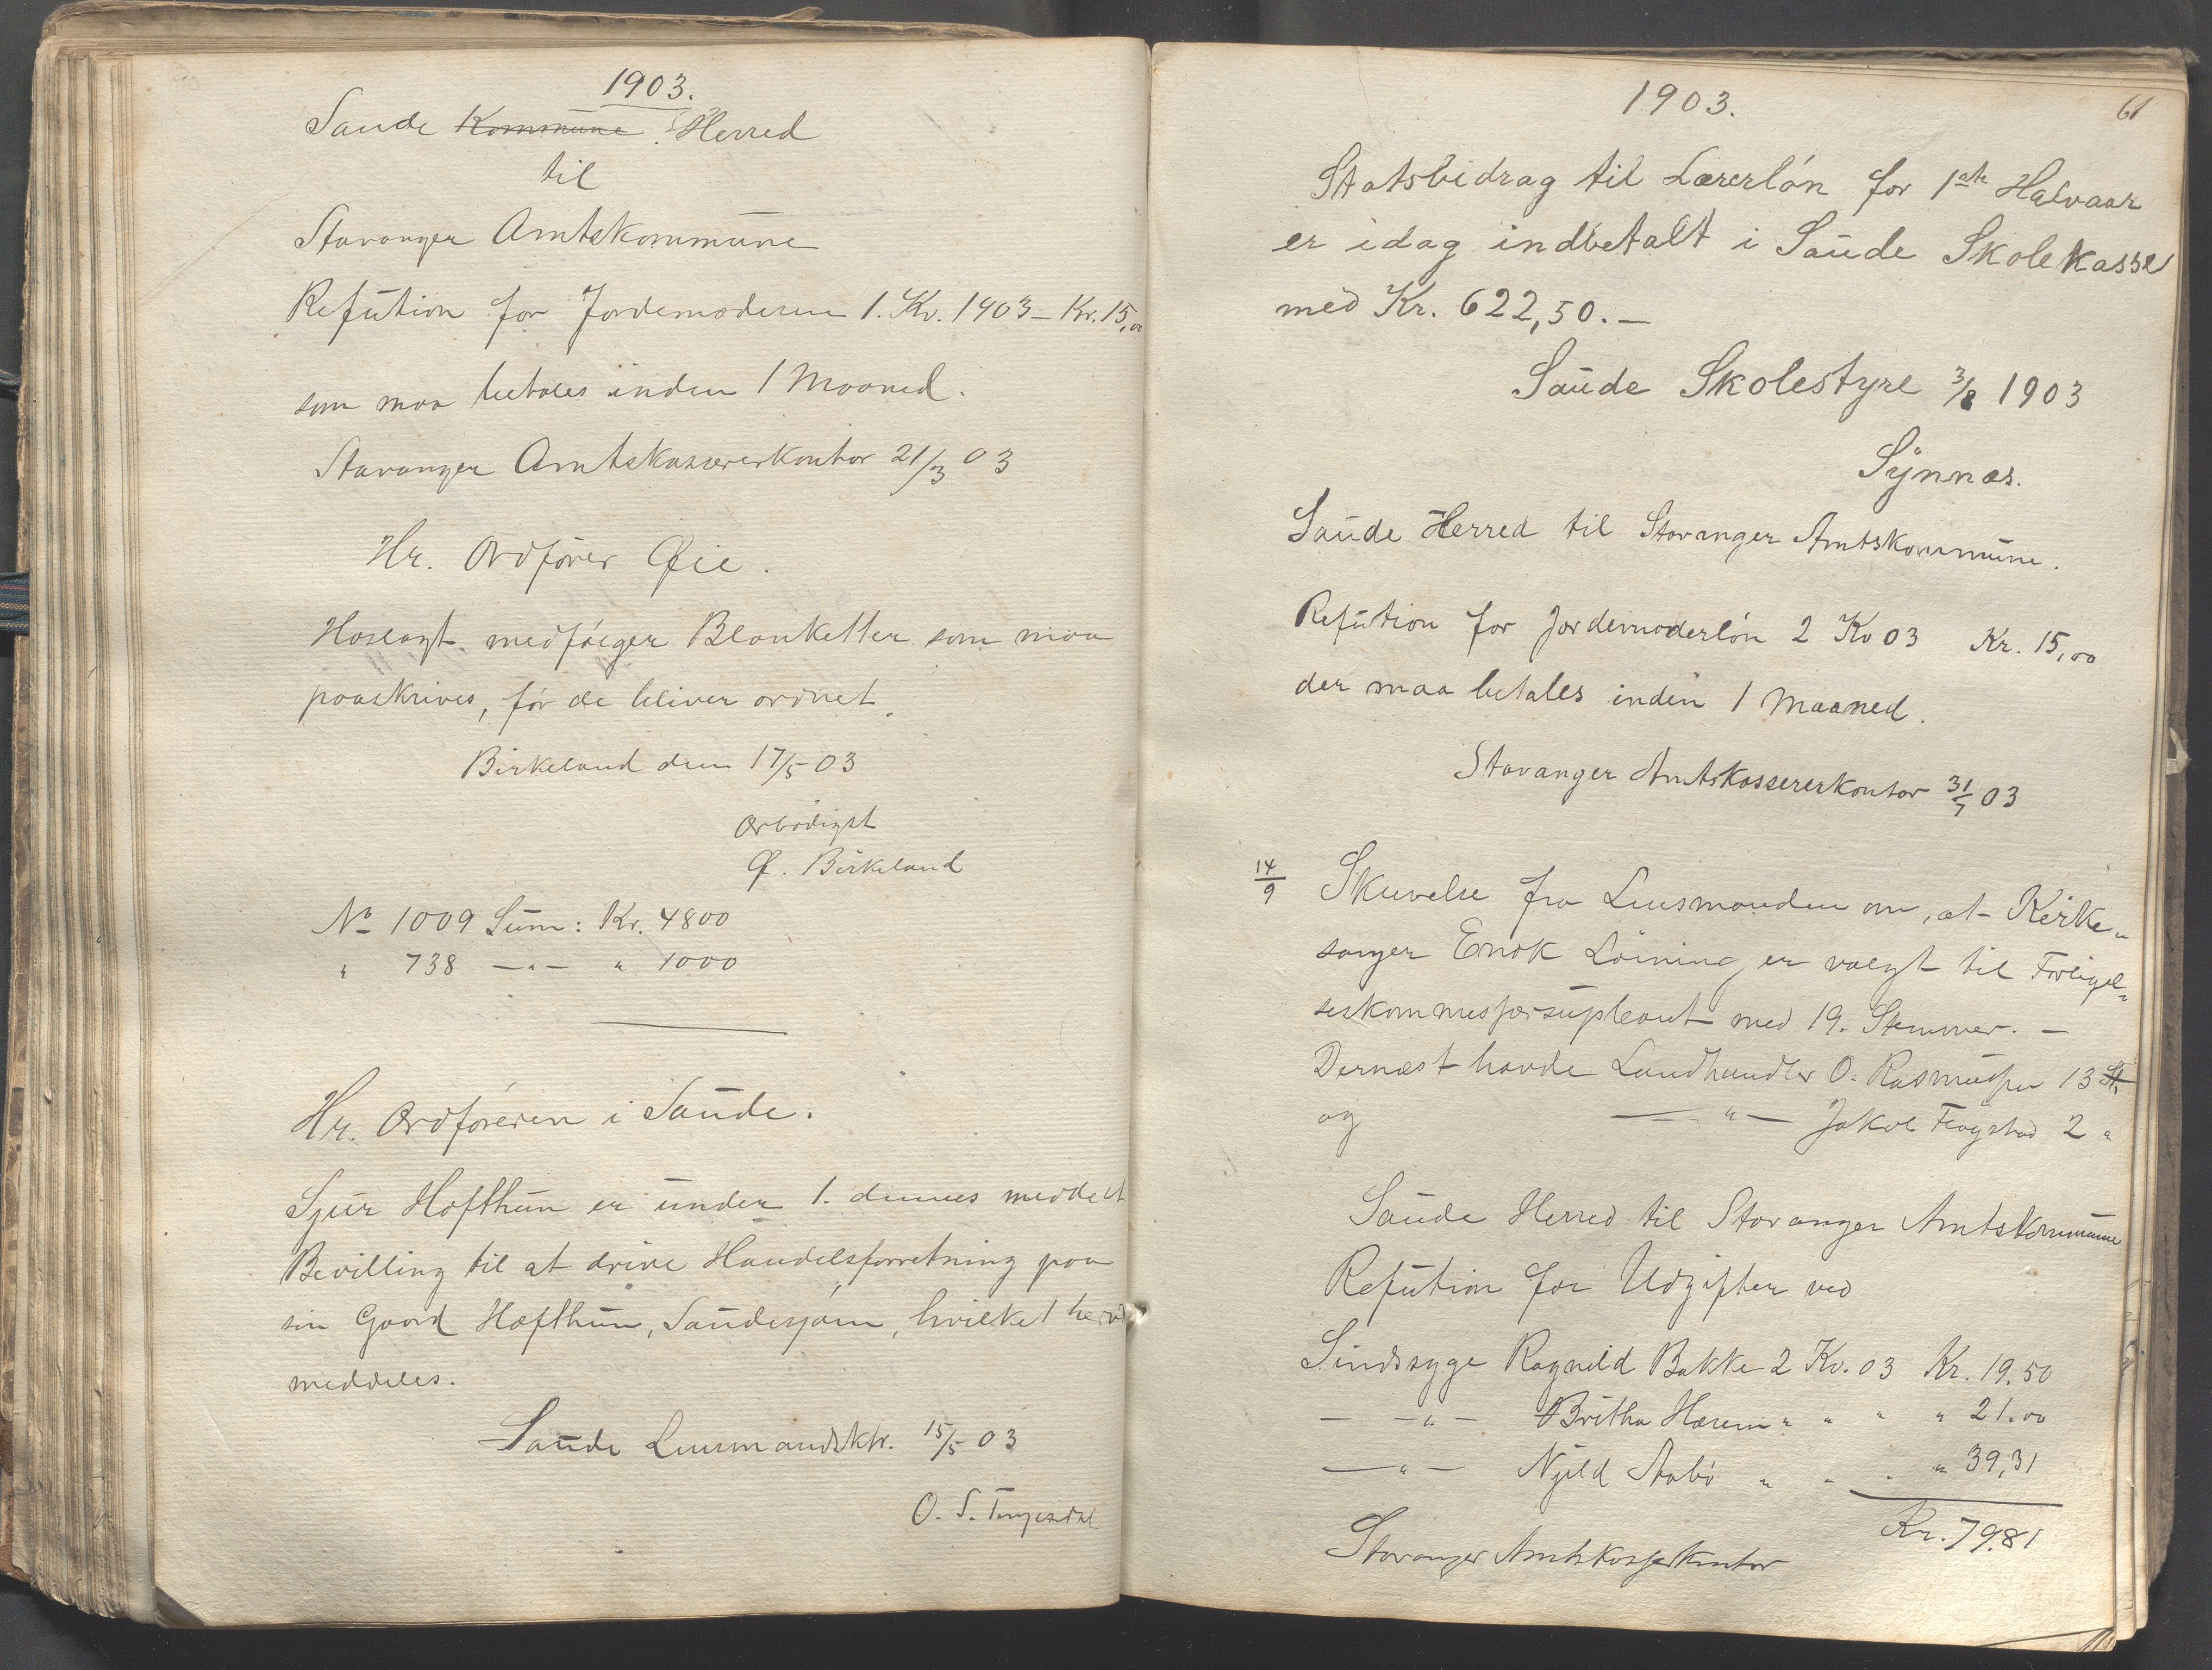 1903.
Saude Kommune Herred
til
Stavanger Amtskommune
Refution for Jordemoderen 1. Kv. 1903 – Kr. 15,00
som maa betales inden 1 Maaned.
Stavanger Amtskassererkontor 21/3 03
Hr. Ordfører Øie.
Hoslagt medfølger Blanketter som maa
paaskrives, før de bliver ordnet.
Birkeland den 17/5 03
Ærbødigst
Ø. Birkeland
No 1009 Sum: Kr. 4800
" 738 —"— " 1000
Hr. Ordføreren i Saude.
Sjur Hofthun er under 1. dennes meddelt
Bevilling til at drive Handelsforretning paa
sin Gaard Hofthun, Saudesjøen, hvilket herved
meddeles.
Saude Lensmandsktr. 15/5 03
O. S. Tengesdal
61
1903.
Statsbidrag til Lærerløn for 1ste Halvaar
er idag indbetalt i Saude Skolekasse
med Kr. 622,50. —
Saude Skolestyre 3/8 1903
Synnæs.
Saude Herred til Stavanger Amtskommune.
Refution for Jordemoderløn 2 Kv 03 Kr. 15,00
der maa betales inden 1 Maaned.
Stavanger Amtskassererkontor 31/7 03
14/9 Skrivelse fra Lensmanden om, at Kirke-
sanger Enok Løining er valgt til Forligel-
seskommisærsupleant med 19. Stemmer. —
Dernæst havde Landhandler O. Rasmussen 13 St.
og —"— Jakob Fløgstad 2 "
Saude Herred til Stavanger Amtskommune
Refution for Udgifter ved
Sindssyge Ragnild Bakke 2 Kv. 03 Kr. 19.50
— —"— Britha Hærem " " " " 21.00
—"— Njeld Aabø " " " " 39,31
Kr. 79.81
Stavanger Amtskasserkontor